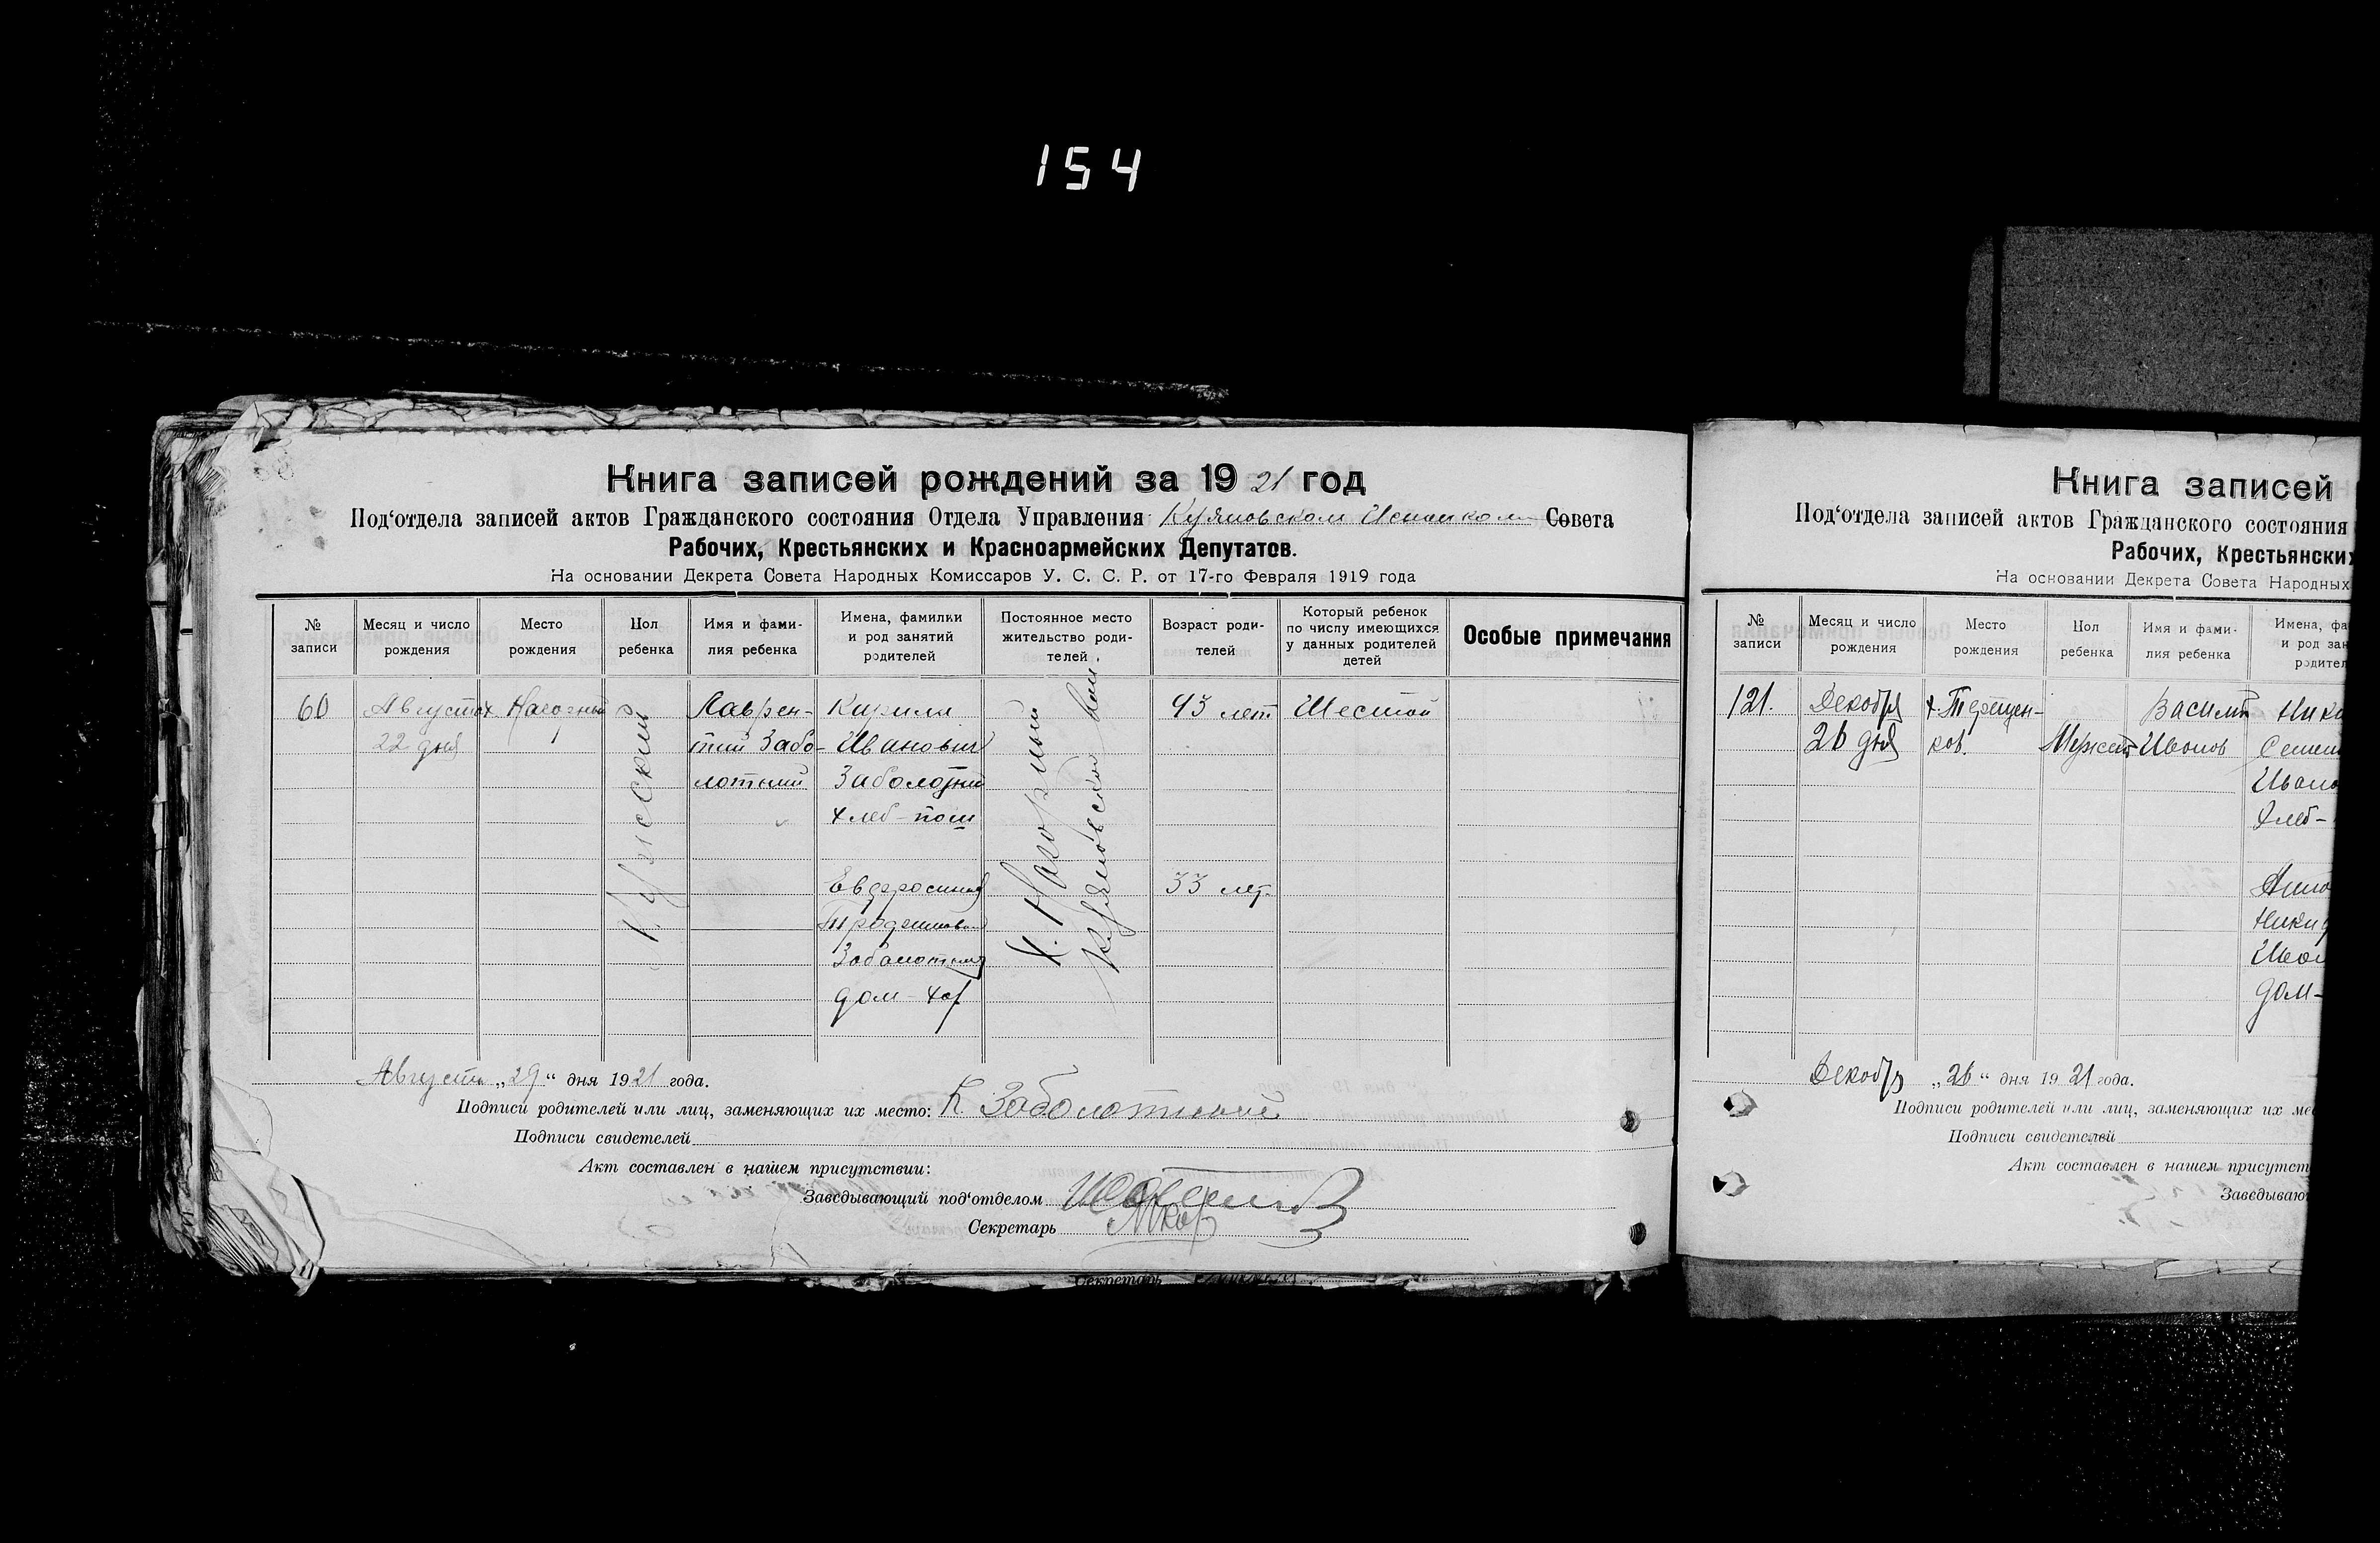 154
Книга записей рождений за 1921 год
Под‘отдела записей актов Гражданского состояния Отдела Управления Совета
Рабочих, Крестьянских и Красноармейских Депутатов.
На основании Декрета Совета Народных Комиссаров У. С. С. Р. от 17-го Февраля 1919 года
№ записи
Месяц и число рождения
Место рождения
Пол ребенка
Имя и фами-
лия ребенка
Имена, фамилии
и род занятий
родителей
Постоянное место
жительство роди-
телей
Возраст роди-
телей
Который ребенок
по числу имеющихся
у данных родителей
детей
Особые примечания
60
Августа
22 дня
х. Нагорный
Мужеский
Лаврен-
тий Забо-
лотный
Кирилл
Иванович
Заболотный
хлеб-паш
Евфросиния
Заболотная
дом-хоз
х. Нагорный
43 лет
33 лет.
Шестой
Августа „29“ дня 1921 года.
Подписи родителей или лиц, заменяющих их место: К Заболотный
Подписи свидетелей
Акт составлен в нашем присутствии:
Заведывающий под‘отделом
Секретарь
Секретарь
Книга записей
Под‘отдела записей актов Гражданского состояния
Рабочих, Крестьянских
На основании Декрета Совета Народных
№ записи
Месяц и число рождения
Место рождения
Пол ребенка
Имя и фами-
лия ребенка
Имена, фа
и род зан
родител
121.
Декабря
26 дня
х. Терещен-
ков.
Василий
Иванов
Ники
Семен
Ивано
Хлеб-
Анна
Никиф
Иван
дом-
Декабря „26“ дня 1921 года.
Подписи родителей или лиц, заменяющих их ме
Подписи свидетелей
Акт составлен в нашем присутст
Заведываю